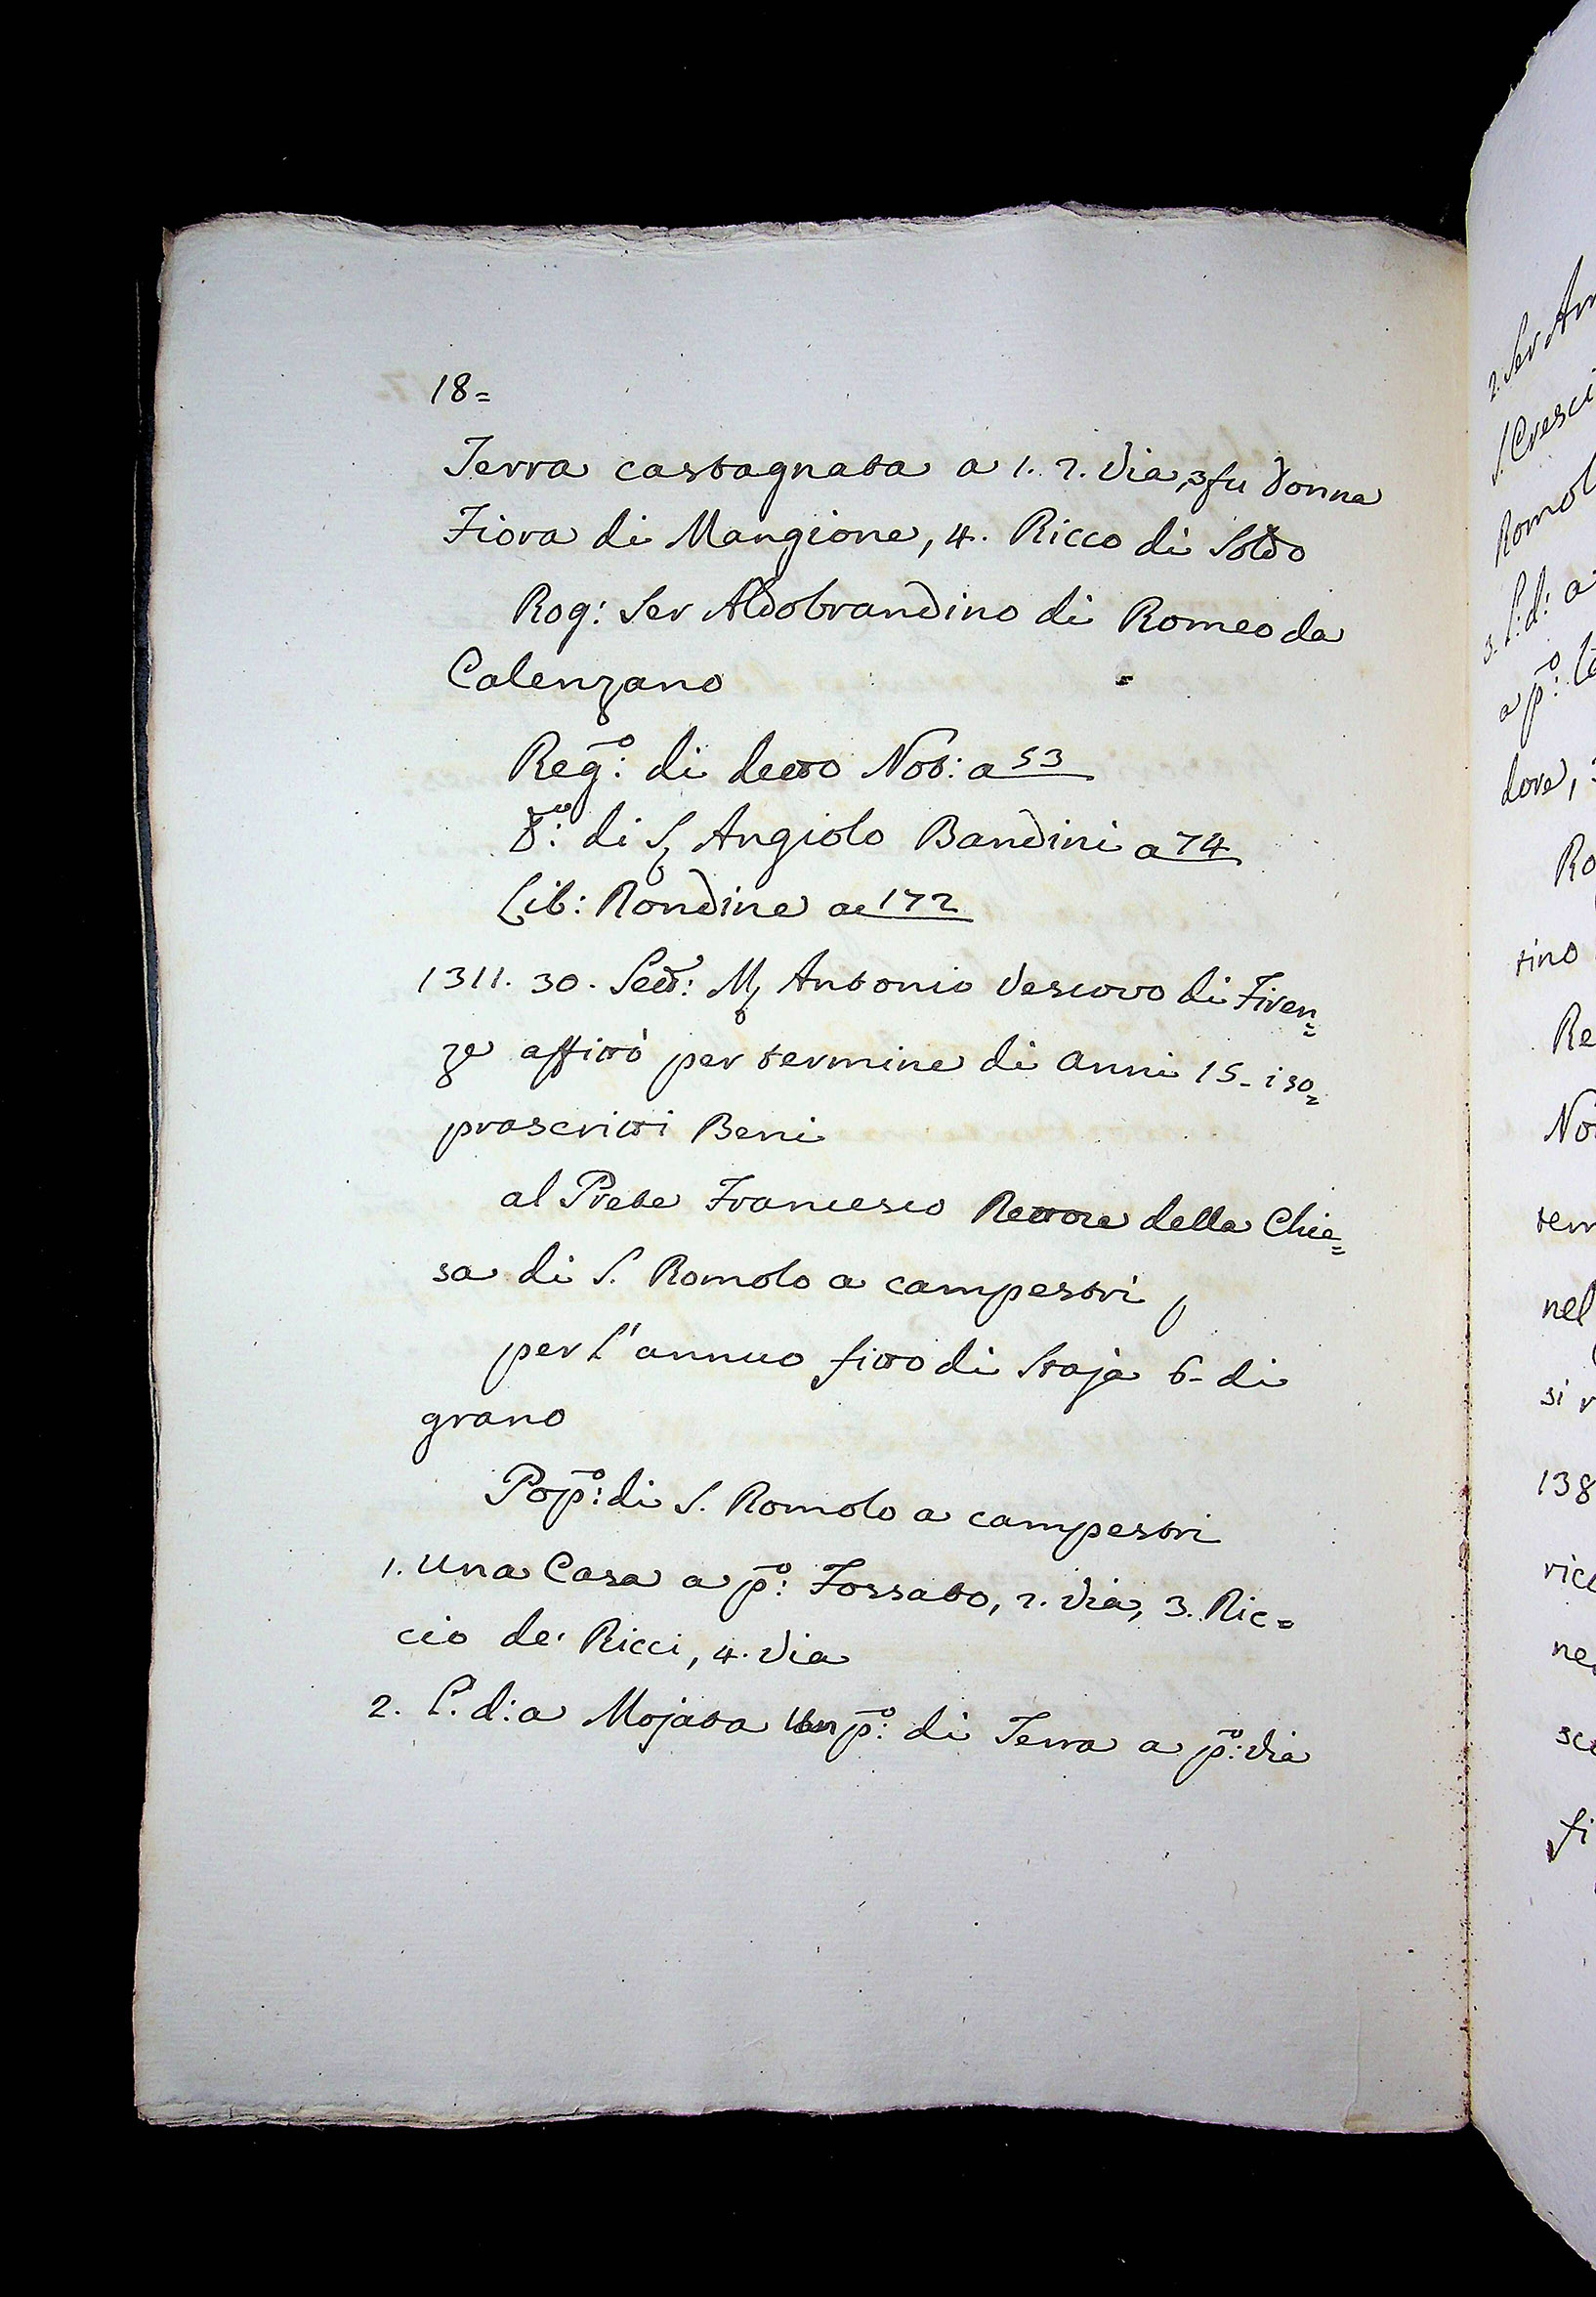 18=
Terra castagnata a 1. 2. Via, 3 fu Donna
Fiora di Mangione, 4. Ricco di Soldo
Rog: Ser Aldobrandino di Romeo da
Calenzano
Reg:o di detto Not: a 53
D:o di S Angiolo Bandini a 74
Lib: Rondine a 172
1311. 30. Sett: M Antonio Vescovo di Firen=
ze affittò per termine di anni 15- i so=
prascritti Beni
al Prete Francesco Rettore della Chie=
sa di S. Romolo a campestri,
per l'annuo fitto di Staja 6- di
grano
Pop:o di S. Romolo a campestri
1. una Casa a p:o Fossato, 2. Via, 3. Ric=
cio de' Ricci, 4. Via
2. L. d: a Mojata Un p:o di Terra a p:o Via
2. Ser
S. Cresci
Romol
3. L: d: a
a p:o
dove,
Ro
tino
Re
No
tem
nel
si r
138
ricc
ne
sc
fi